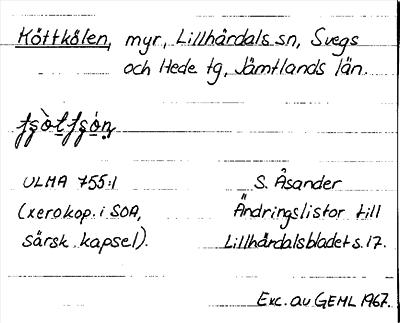 Köttkölen, myr, Lillhärdals sn, Svegs
och Hede tg, Jämtlands län.
ULMA 755:1
(xerokop. i SOA,
särsk. kapsel).
S. Åsander
Ändringslistor till
Lillhärdalsbladet s. 17.
Exc. av GEHL 1967.